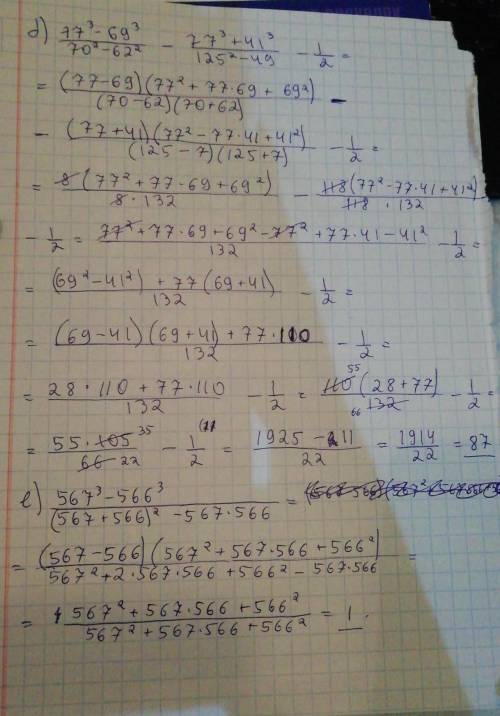 d) (77³-69³)/(70²-62²) - (77³+41³)/(125²-49) - 1/2 =
= ((77-69)(77²+77·69+69²))/((70-62)(70+62)) -
- ((77+41)(77²-77·41+41²))/((125-7)(125+7)) - 1/2 =
= (8(77²+77·69+69²))/(8·132) - (118(77²-77·41+41²))/(118·132)
- 1/2 = (77²+77·69+69²-77²+77·41-41²)/132 - 1/2 =
= ((69²-41²)+77(69+41))/132 - 1/2 =
= ((69-41)(69+41)+77·110)/132 - 1/2 =
= (28·110+77·110)/132 - 1/2 = (110 55 (28+77))/(66 132) - 1/2 =
= (55·105 35)/(66 22) - 1/2 (11 = (1925-11)/22 = 1914/22 = 87
e) (567³-566³)/((567+566)²-567·566) =
= ((567-566)(567²+567·566+566²))/(567²+2·567·566+566²-567·566) =
= (1 567²+567·566+566²)/(567²+567·566+566²) = 1.